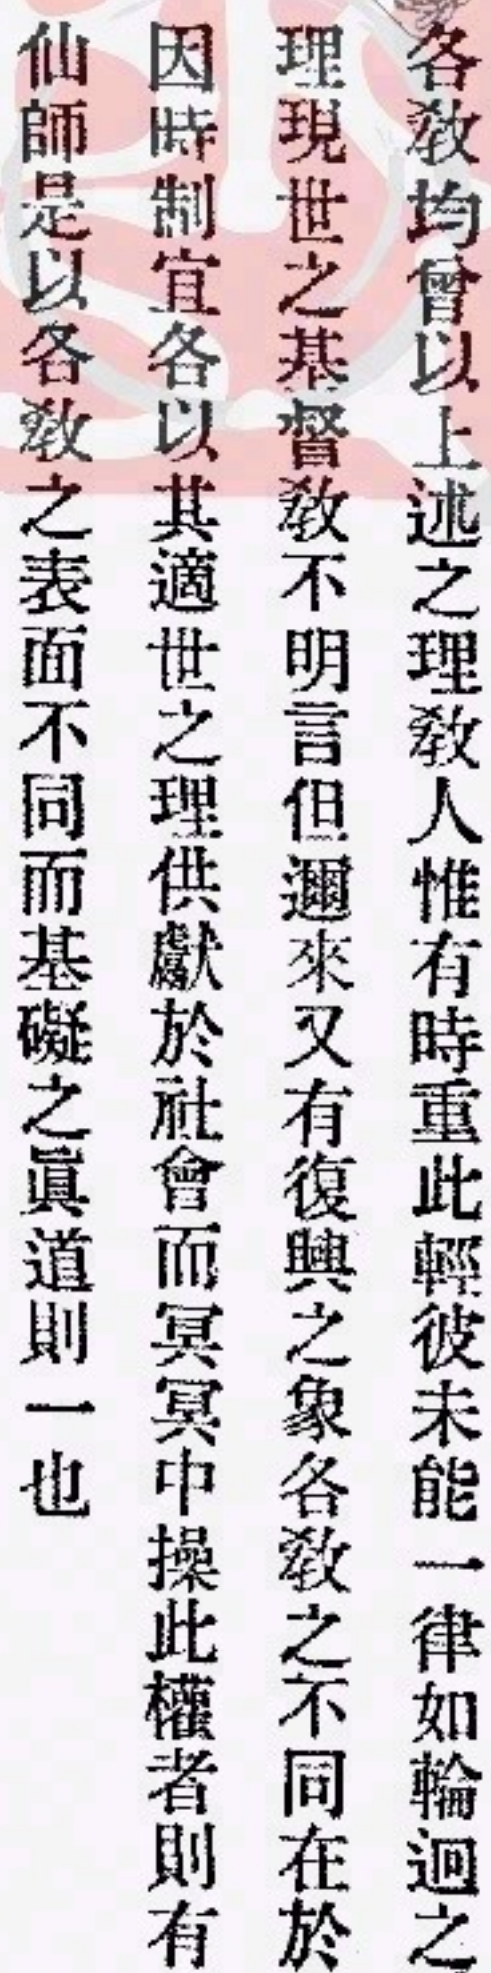 各敎均曾以上述之理敎人惟有時重此輕彼未能一律如輪迴之
理現世之基督敎不明言但邇來又有復興之象各敎之不同在於
因時制宜各以其適世之理供獻於社會而冥冥中操此權者則有
仙師是以各敎之表面不同而基礙之眞道則一也